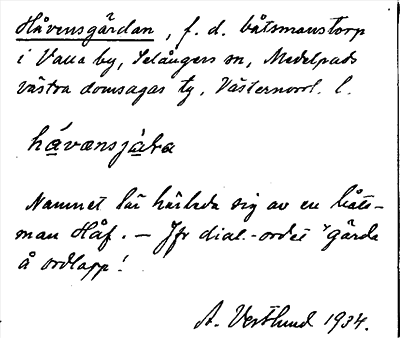 Håvensgärdan, f. d. båtsmanstorp
i Valla by, Selångers sn, Medelpads
västra domsagas tg, Västernorrl. l.
hå̱vænsjä̱ḍa
Namnet lär härleda sig av en båts-
man Håf. — Jfr dial.-ordet gärda
å ordlapp!
A. Vestlund 1934.